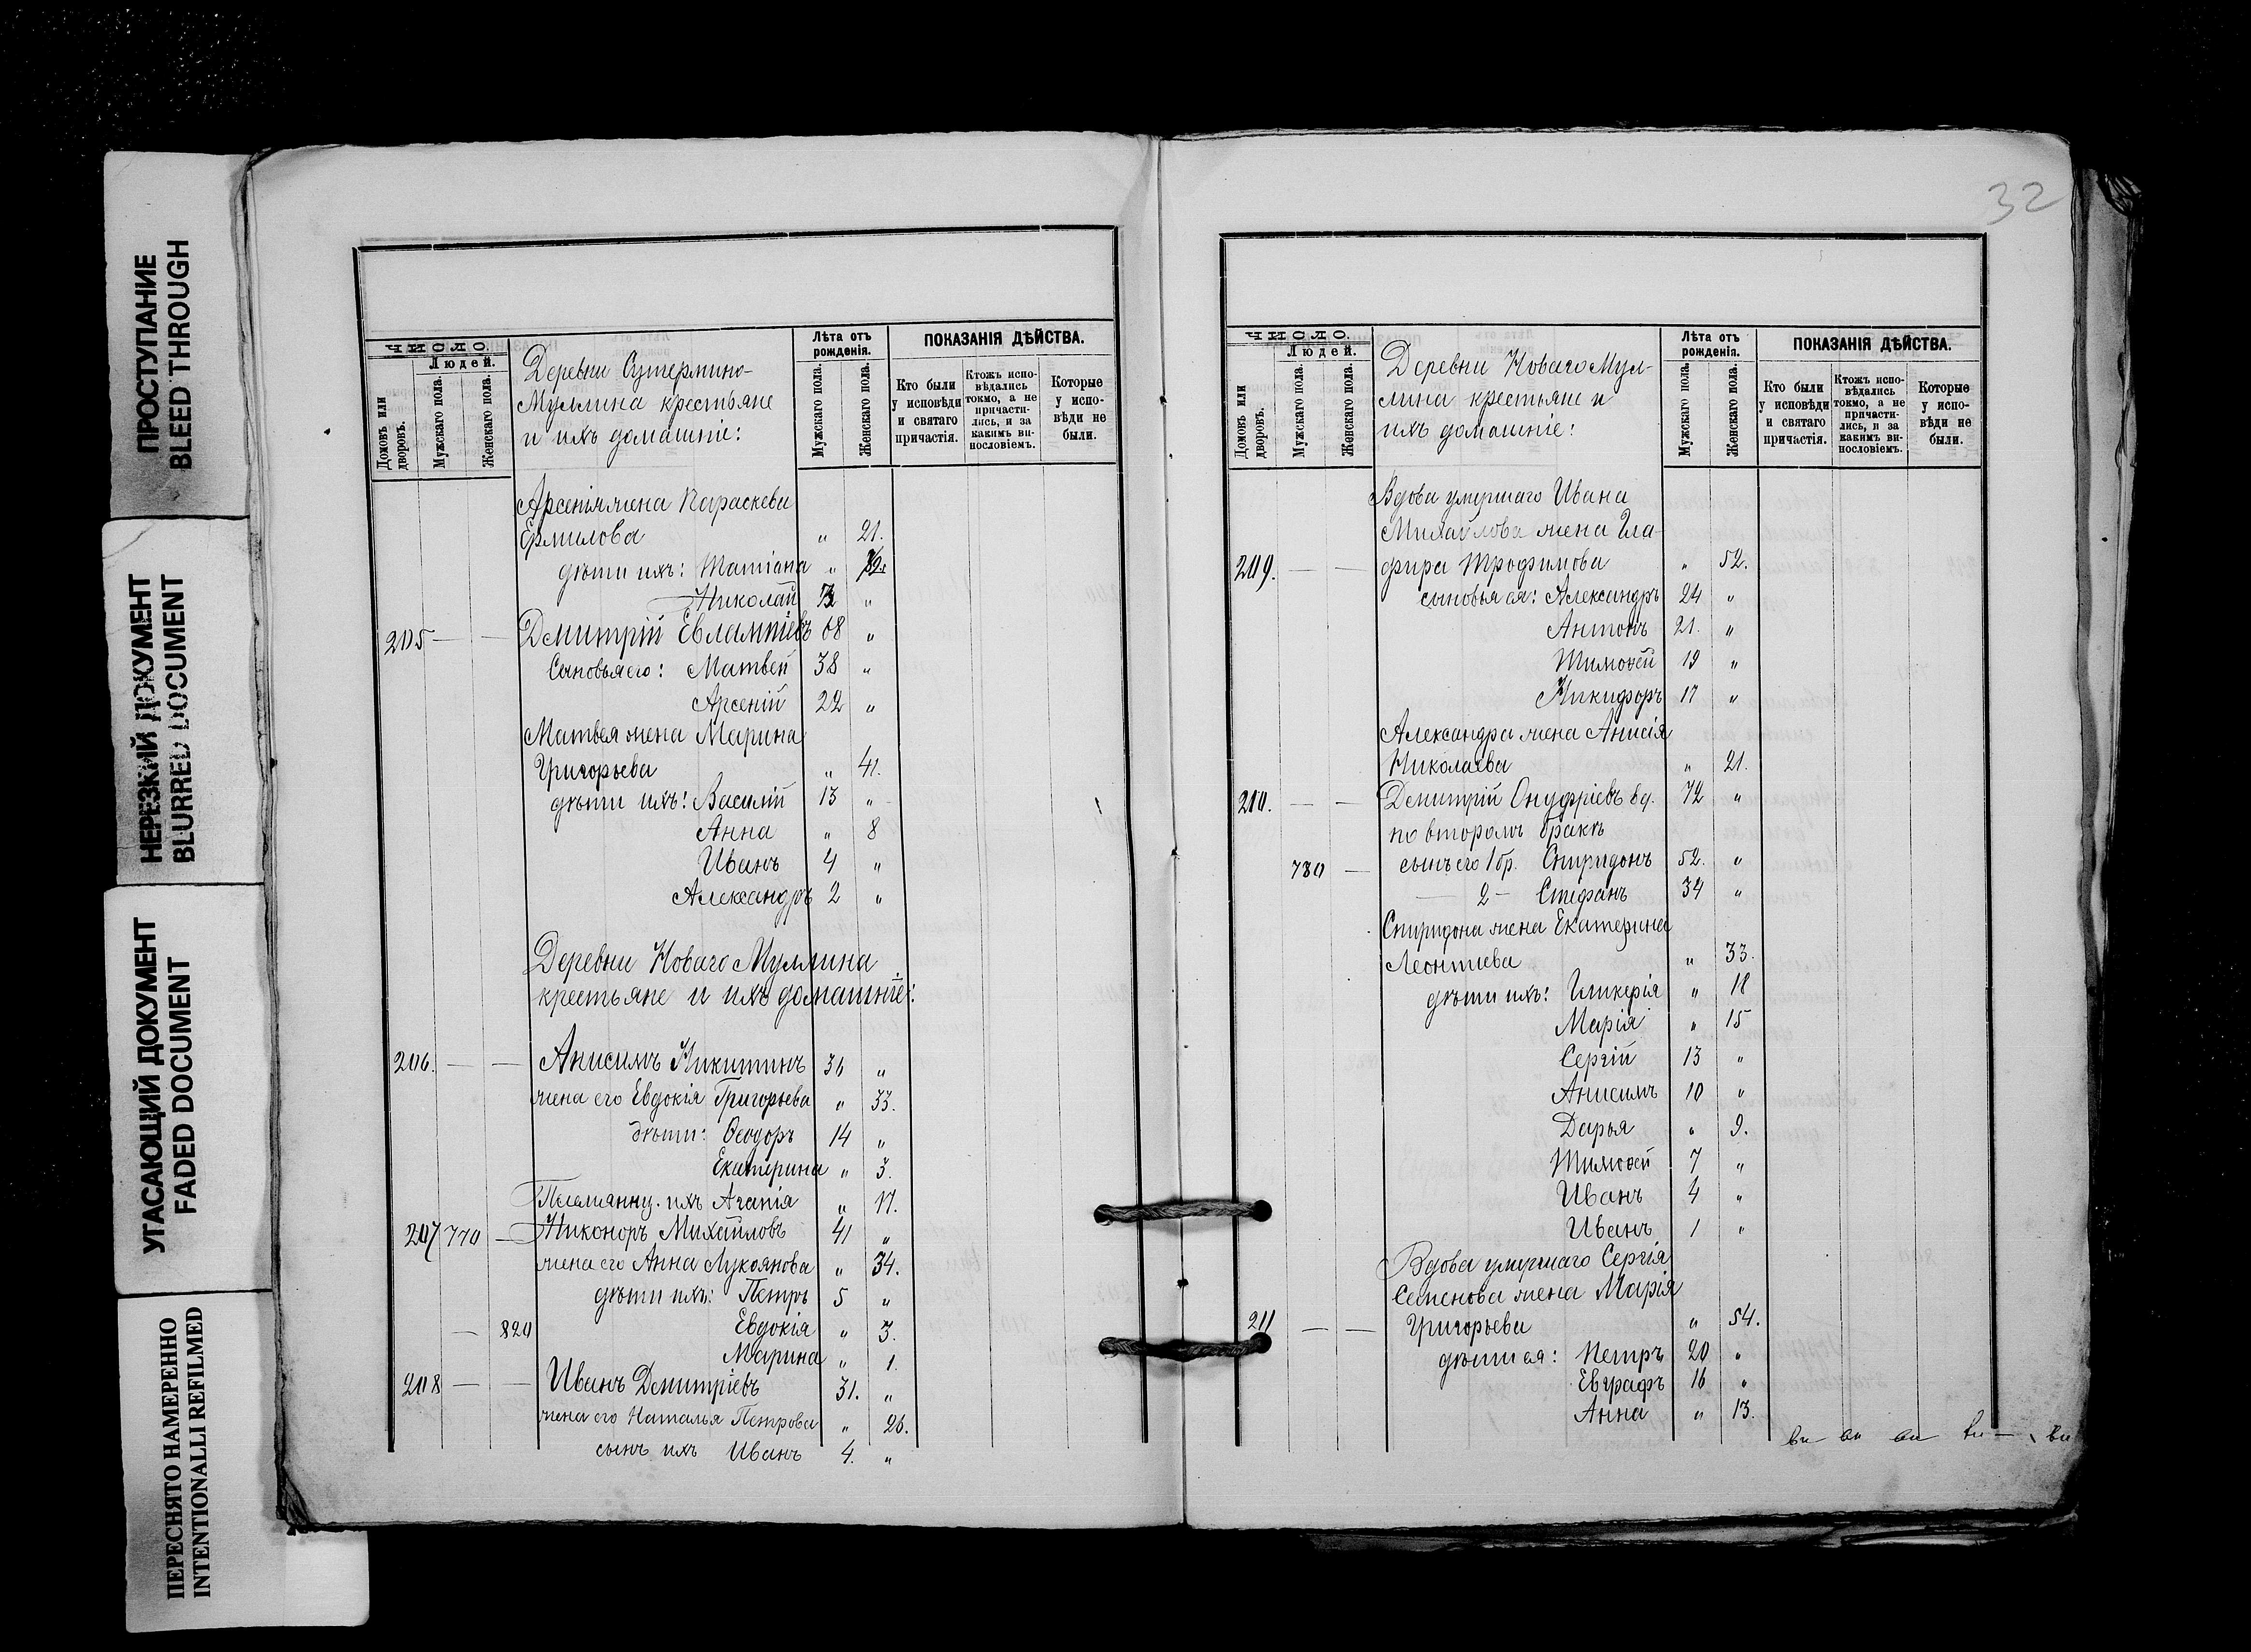 ПРОСТУПАНИЕ
BLEED THROUGH
НЕРЕЗКИЙ ДОКУМЕНТ
BLURRED DOCUMENT
УГАСАЮЩИЙ ДОКУМЕНТ
FADED DOCUMENT
ПЕРЕСНЯТО НАМЕРЕННО
INTENTIONALLI REFILMED
ЧИСЛО.
Людей.
Домовъ или дворовъ.
Мужскаго пола.
Женскаго пола.
Деревни
Муллина крестьяне
и ихъ домашніе:
Лѣта отъ рожденія.
Мужскаго пола.
Женскаго пола.
ПОКАЗАНІЯ ДѢЙСТВА.
Кто были у исповѣди и святаго причастія.
Ктожъ испо-вѣдались токмо, а не причасти-лись, и за какимъ ви-нословіемъ.
Которые у испо-вѣди не были.
Арсенія жена Параскева
Ермилова " 21.
дѣти ихъ: Татіана "
Николай "
205 — — Дмитрій Евлампіевъ 68 "
Сыновья его: Матвей 38 "
Арсеній 22 "
Матвея жена Марина
Григорьева " 41.
дѣти ихъ: Василій 13 "
Анна " 8
Иванъ 4 "
Александръ 2 "
Деревни Новаго Муллина
крестьяне и ихъ домашніе:
206. — — Анисимъ Никитинъ 36 "
жена его Евдокія Григорьева " 33.
дѣти: Ѳеодоръ 14 "
Екатерина " 3.
Племянну. ихъ Агапія " 17.
207 770 — Никоноръ Михайловъ 41 "
жена его Анна Лукоянова " 34.
дѣти ихъ: Петръ 5 "
— 820 Евдокія " 3.
Марина " 1.
208 — — Иванъ Дмитріевъ 31. "
жена его Наталья Петрова " 26.
сынъ ихъ Иванъ 4. "
32
ЧИСЛО.
Людей.
Домовъ или дворовъ.
Мужскаго пола.
Женскаго пола.
Деревни Новаго Мул-
лина крестьяне и
ихъ домашніе:
Лѣта отъ рожденія.
Мужскаго пола.
Женскаго пола.
ПОКАЗАНІЯ ДѢЙСТВА.
Кто были у исповѣди и святаго причастія.
Ктожъ испо-вѣдались токмо, а не причасти-лись, и за какимъ ви-нословіемъ.
Которые у испо-вѣди не были.
Вдова умершаго Ивана
Михайлова жена Гла-
209. — — фира Трофимова " 52.
сыновья ея: Александръ 24 "
Антонъ 21. "
Тимоѳей 19 "
Никифоръ 17 "
Александра жена Анисія
Николаева " 21.
210. — — Дмитрій Онуфріевъ вд. 72 "
по второмъ бракѣ
780 — сынъ его 1 бр. Спиридонъ 52. "
— 2 — Стефанъ 34 "
Спиридона жена Екатерина
Леонтіева " 33.
дѣти ихъ: Гликерія " 18
Марія " 15
Сергій 13 "
Анисимъ 10 "
Дарья " 9.
Тимоѳей 7 "
Иванъ 4 "
Иванъ 1 "
Вдова умершаго Сергія
Семенова жена Марія
211 — — Григорьева " 54.
дѣти ея: Петръ 20 "
Евграфъ 16 "
Анна " 13.